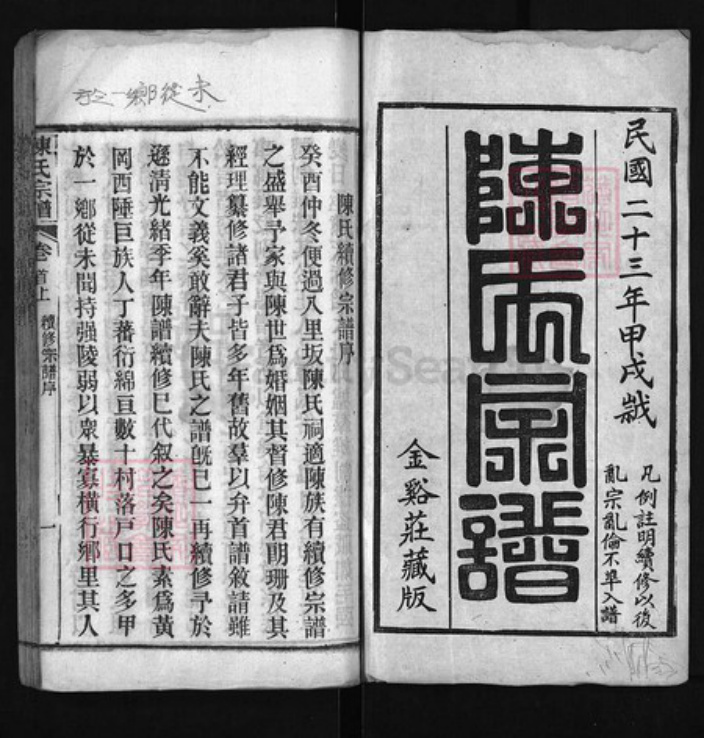 民國二十三年甲戌鋟
凡例註明續修以後
亂宗亂倫不準入譜
陳氏宗譜
金谿莊藏版
於一鄉從未
陳氏續修宗譜序
癸酉仲冬便過八里坂陳氏祠適陳族有續修宗譜
之盛舉予家與陳世爲婚姻其督修陳君明珊及其
經理纂修諸君子皆多年舊故羣以弁首譜敘請雖
不能文義奚敢辭夫陳氏之譜旣已一再續修予於
遜清光緒季年陳譜續修已代叙之矣陳氏素爲黃
岡西陲巨族人丁蕃衍綿亘數十村落戸口之多甲
於一鄉從未聞持强陵弱以衆暴寡橫行鄉里其人
陳氏宗譜
卷首上
續修宗譜序
一